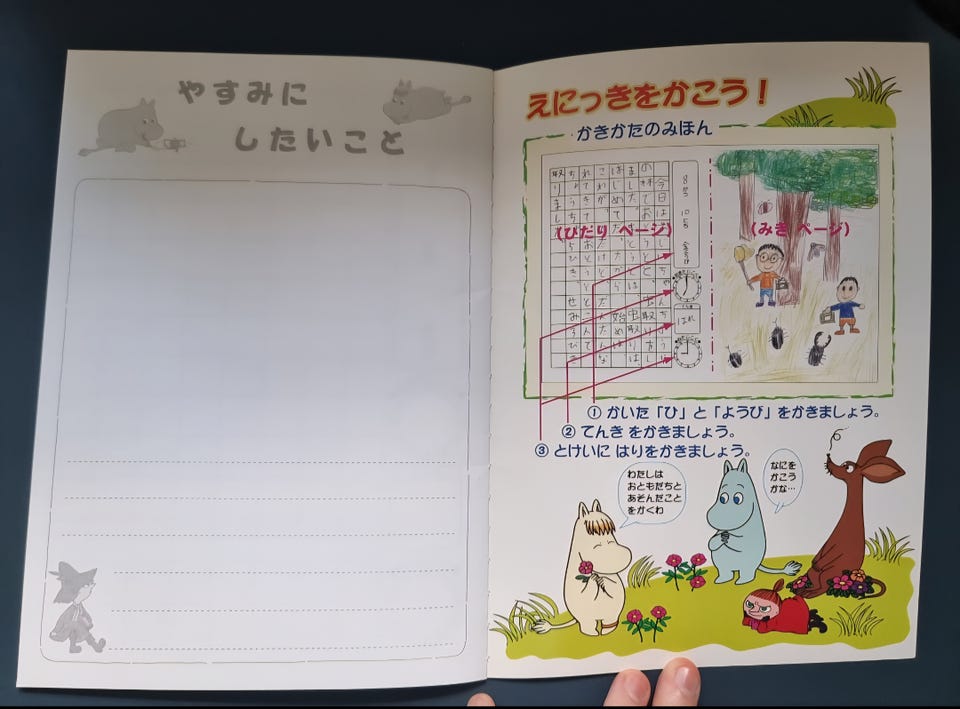 やすみに
したいこと
えにっきをかこう！
かきかたのみほん
今日は
の林でお
ました。
はじめて
れてきて
取りまし
8
10
はれ
(ひだり ページ)
(みぎ ページ)
① かいた「ひ」と「ようび」をかきましょう。
② てんき をかきましょう。
③ とけいに はりをかきましょう。
わたしは
おともだちと
あそんだこと
をかくわ
なにを
かこう
かな…